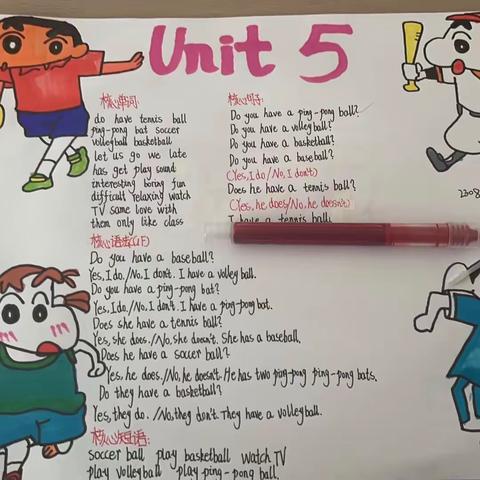 Unit 5
核心单词:
do have tennis ball
ping-pong bat soccer
volleyball basketball
let us go we late
has get play sound
interesting boring fun
difficult relaxing watch
TV same love with
them only like class
核心句子:
Do you have a ping-pong ball?
Do you have a volleyball?
Do you have a basketball?
Do you have a baseball?
(Yes, I do/No, I don't)
Does he have a tennis ball?
(Yes, he does/No, he doesn't)
I have a tennis ball.
2308
核心语法(UF)
Do you have a baseball?
Yes, I do./No, I don't. I have a volleyball.
Do you have a ping-pong bat?
Yes, I do./No, I don't. I have a ping-pong bat.
Does she have a tennis ball?
Yes, she does./No, she doesn't. She has a baseball.
Does he have a soccer ball?
Yes, he does./No, he doesn't. He has two ping-pong ping-pong bats.
Do they have a basketball?
Yes, they do. /No, they don't. They have a volleyball.
核心短语:
soccer ball play basketball watch TV
play volleyball play ping-pong ball.